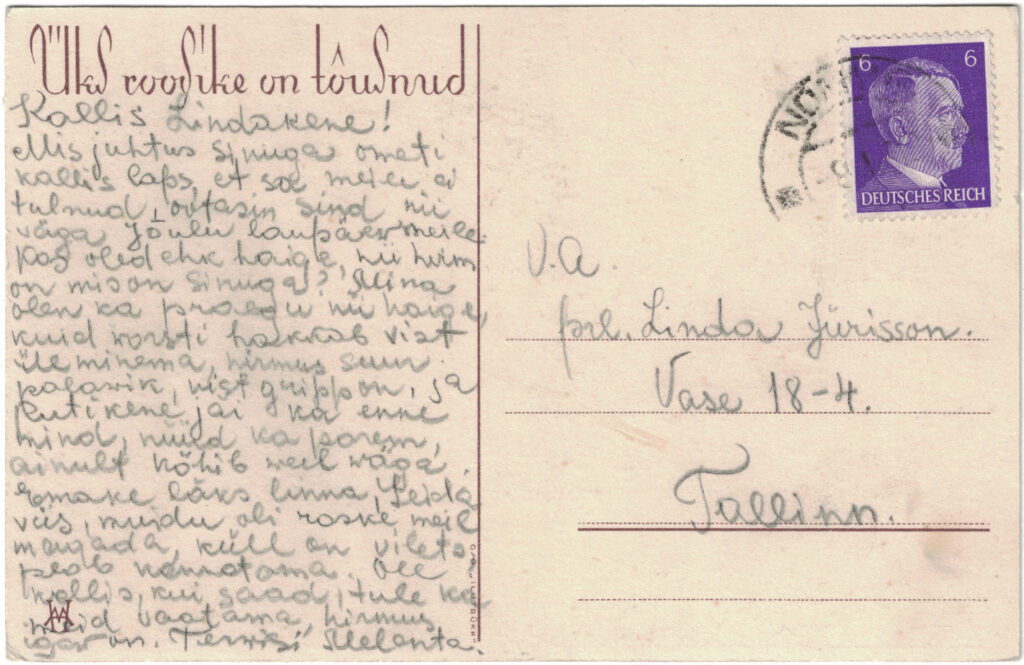 Üks roosike on tõusnud
Kallis Lindakene!
Mis juhtus sinuga ometi
kallis laps, et sa meile ei
tulnud, ootasin sind nii
väga Jõulu laupäev meile.
Kas oled ehk haige, nii hirm
on mis on sinuga? Mina
olen ka praegu nii haige,
kuid worsti hakkab vist
üle minema, hirmus suur
palawik, vist gripp on, ja
Rutikene jäi ka enne
mind, nüüd ka parem,
ainult köhib weel wäga.
Emake läks linna, Leida
viis, muidu oli raske meil
magada, küll on vilets
peab kannatama. Ole
kallis, kui saad, tule ka
meid vaatama, hirmus
igav on. Terwisi Melenta.
NÕMME
6 6
DEUTSCHES REICH
V.A.
prl. Linda Jürisson.
Vase 18-4.
Tallinn.